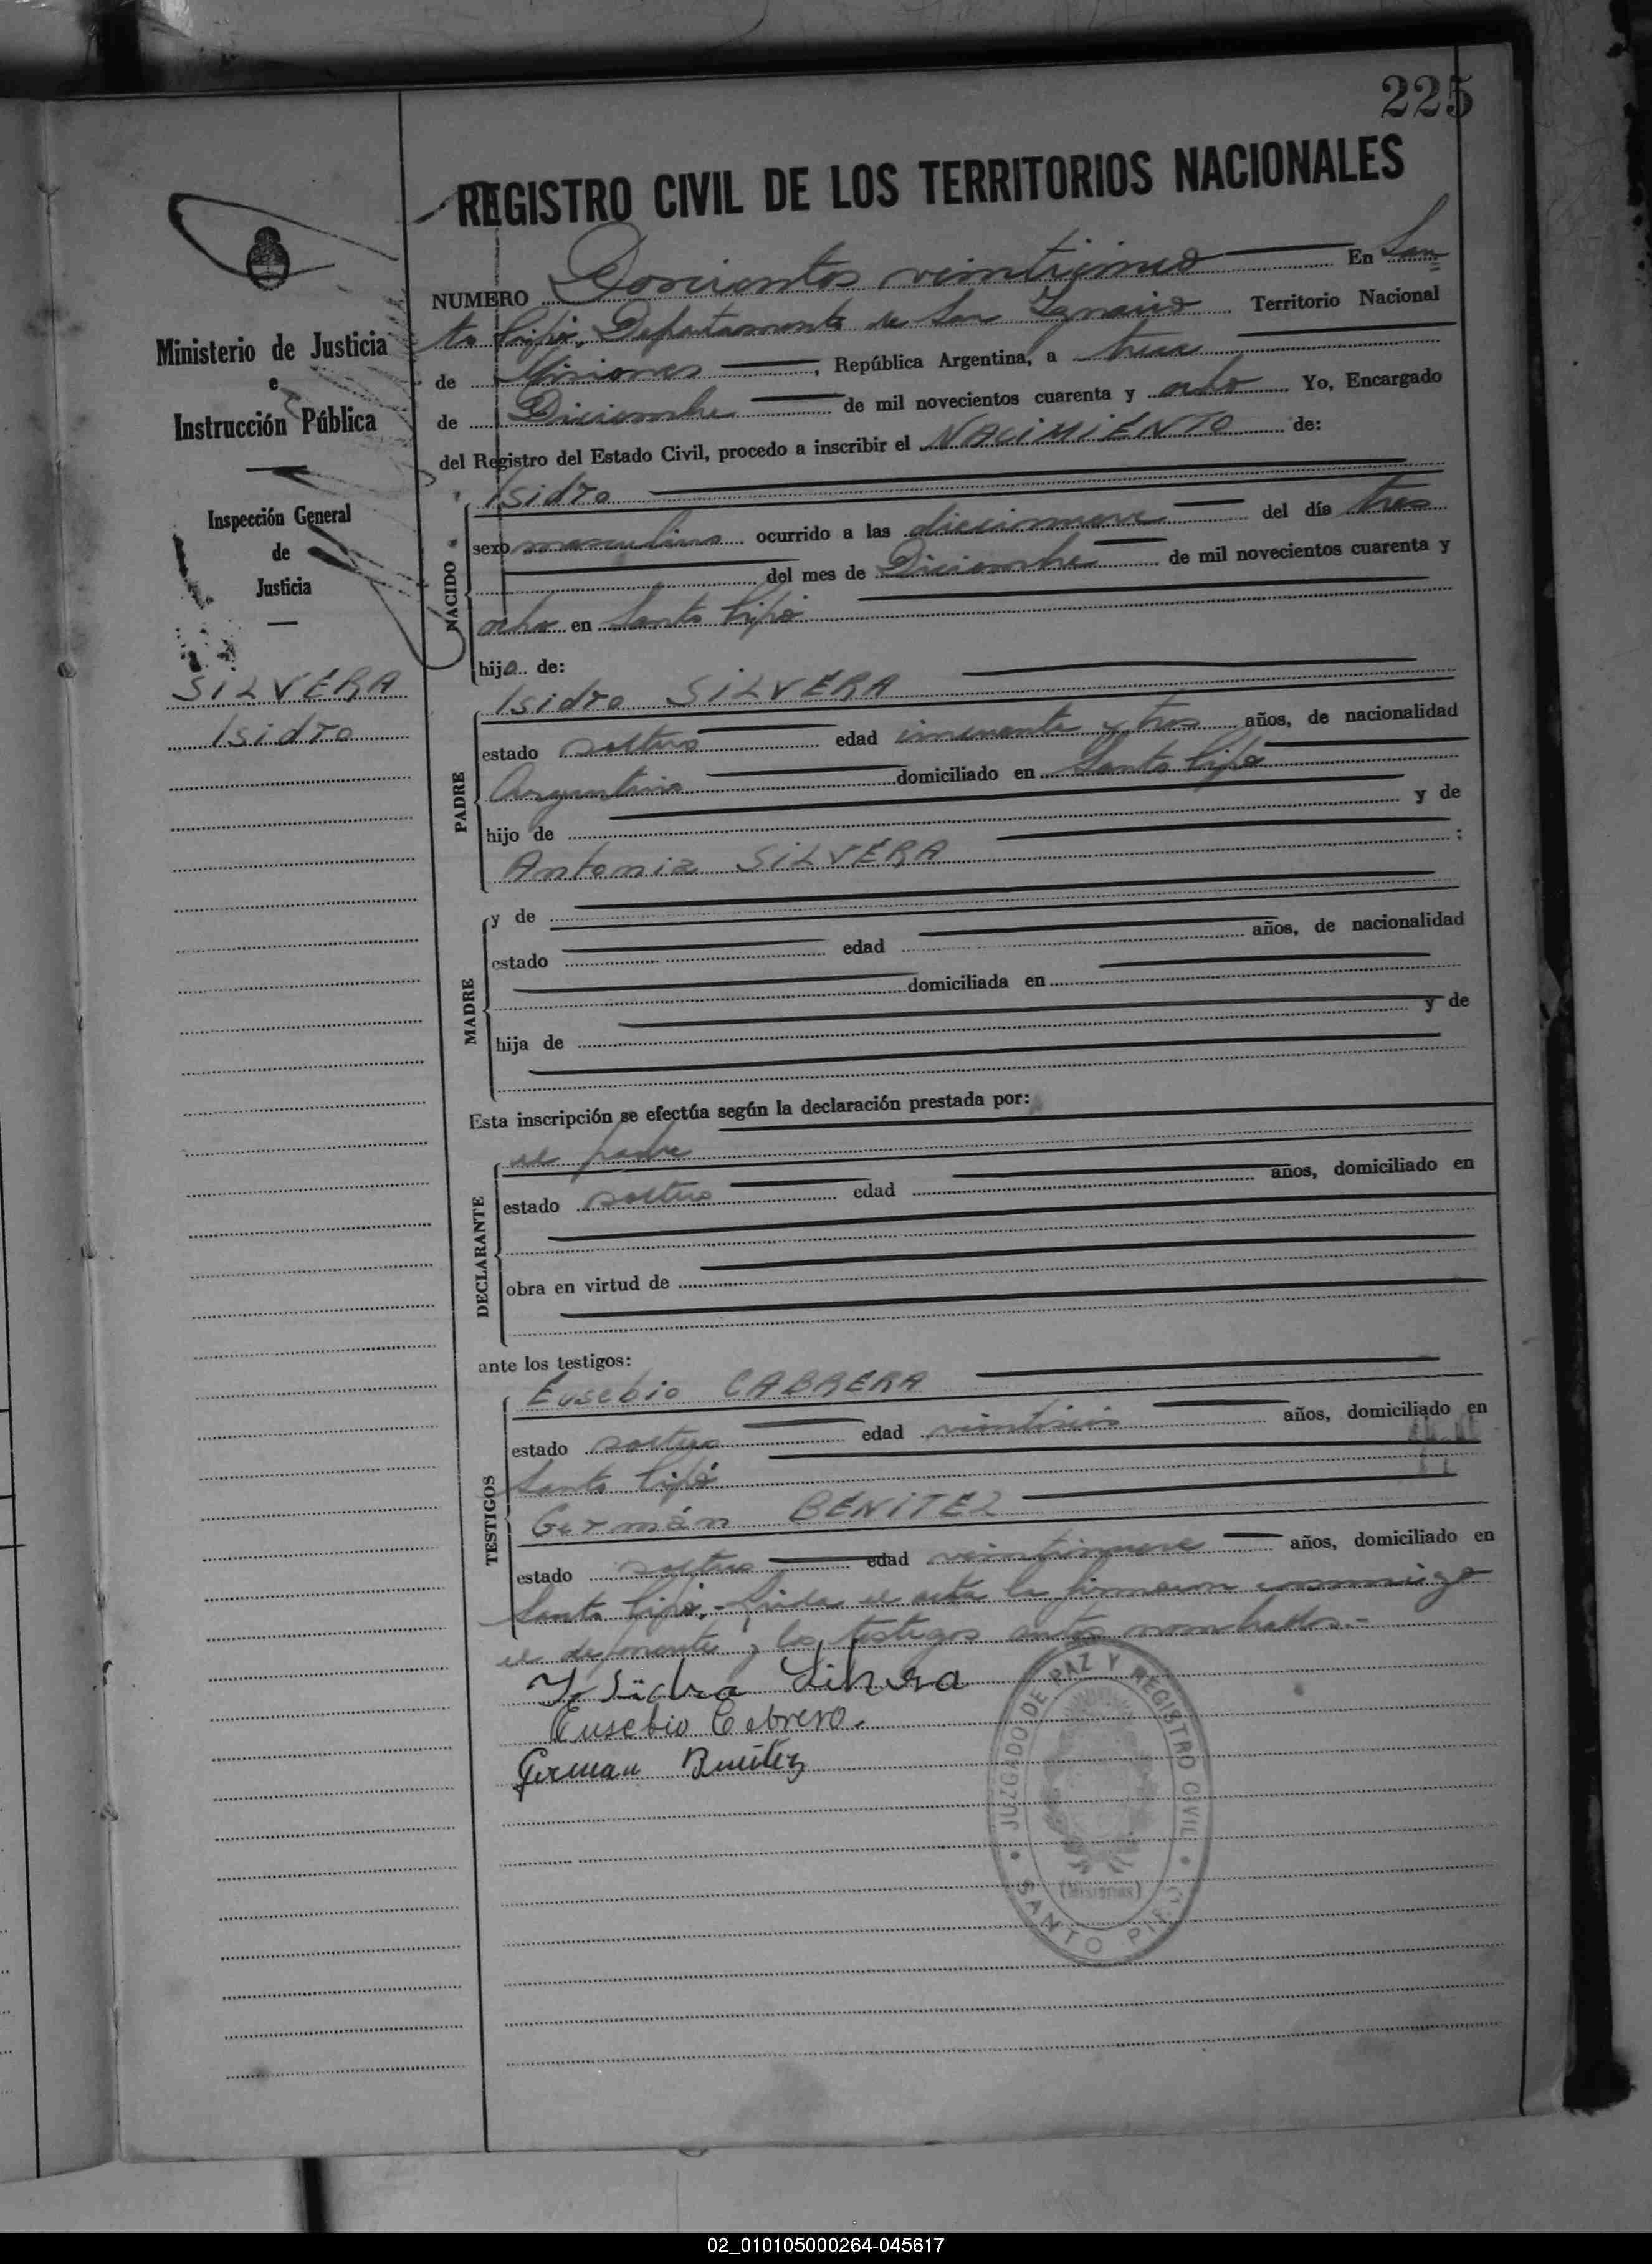 225
REGISTRO CIVIL DE LOS TERRITORIOS NACIONALES
Ministerio de Justicia
e
Instrucción Pública
Inspección General
de
Justicia
SILVERA
Isidro
NUMERO Doscientos veinticinco En San
to Pipó, Departamento de San Ignacio Territorio Nacional
de Misiones, República Argentina, a trece
de Diciembre de mil novecientos cuarenta y ocho Yo, Encargado
del Registro del Estado Civil, procedo a inscribir el NACIMIENTO de:
NACIDO
Isidro
sexo masculino ocurrido a las diecinueve del día tres
del mes de Diciembre de mil novecientos cuarenta y
ocho en Santo Pipó
hijo de:
PADRE
Isidro SILVERA
estado soltero edad cincuenta y tres años, de nacionalidad
Argentina domiciliado en Santo Pipó
hijo de y de
Antonia SILVERA ;
MADRE
y de
estado edad años, de nacionalidad
domiciliada en
hija de y de
Esta inscripción se efectúa según la declaración prestada por:
DECLARANTE
el padre
estado soltero edad años, domiciliado en
obra en virtud de
ante los testigos:
TESTIGOS
Eusebio CABRERA
estado soltero edad veintiseis años, domiciliado en
Santo Pipó
Germán BENITEZ
estado soltero edad veintinueve años, domiciliado en
Santo Pipó.- Leida el acta la firmaron conmigo
el deponente y los testigos antes nombrados.-
Ysidro Silvera
Eusebio Cabrero.
German Benitez
JUZGADO DE PAZ Y REGISTRO CIVIL
(Misiones)
SANTO PIPO
02_010105000264-045617